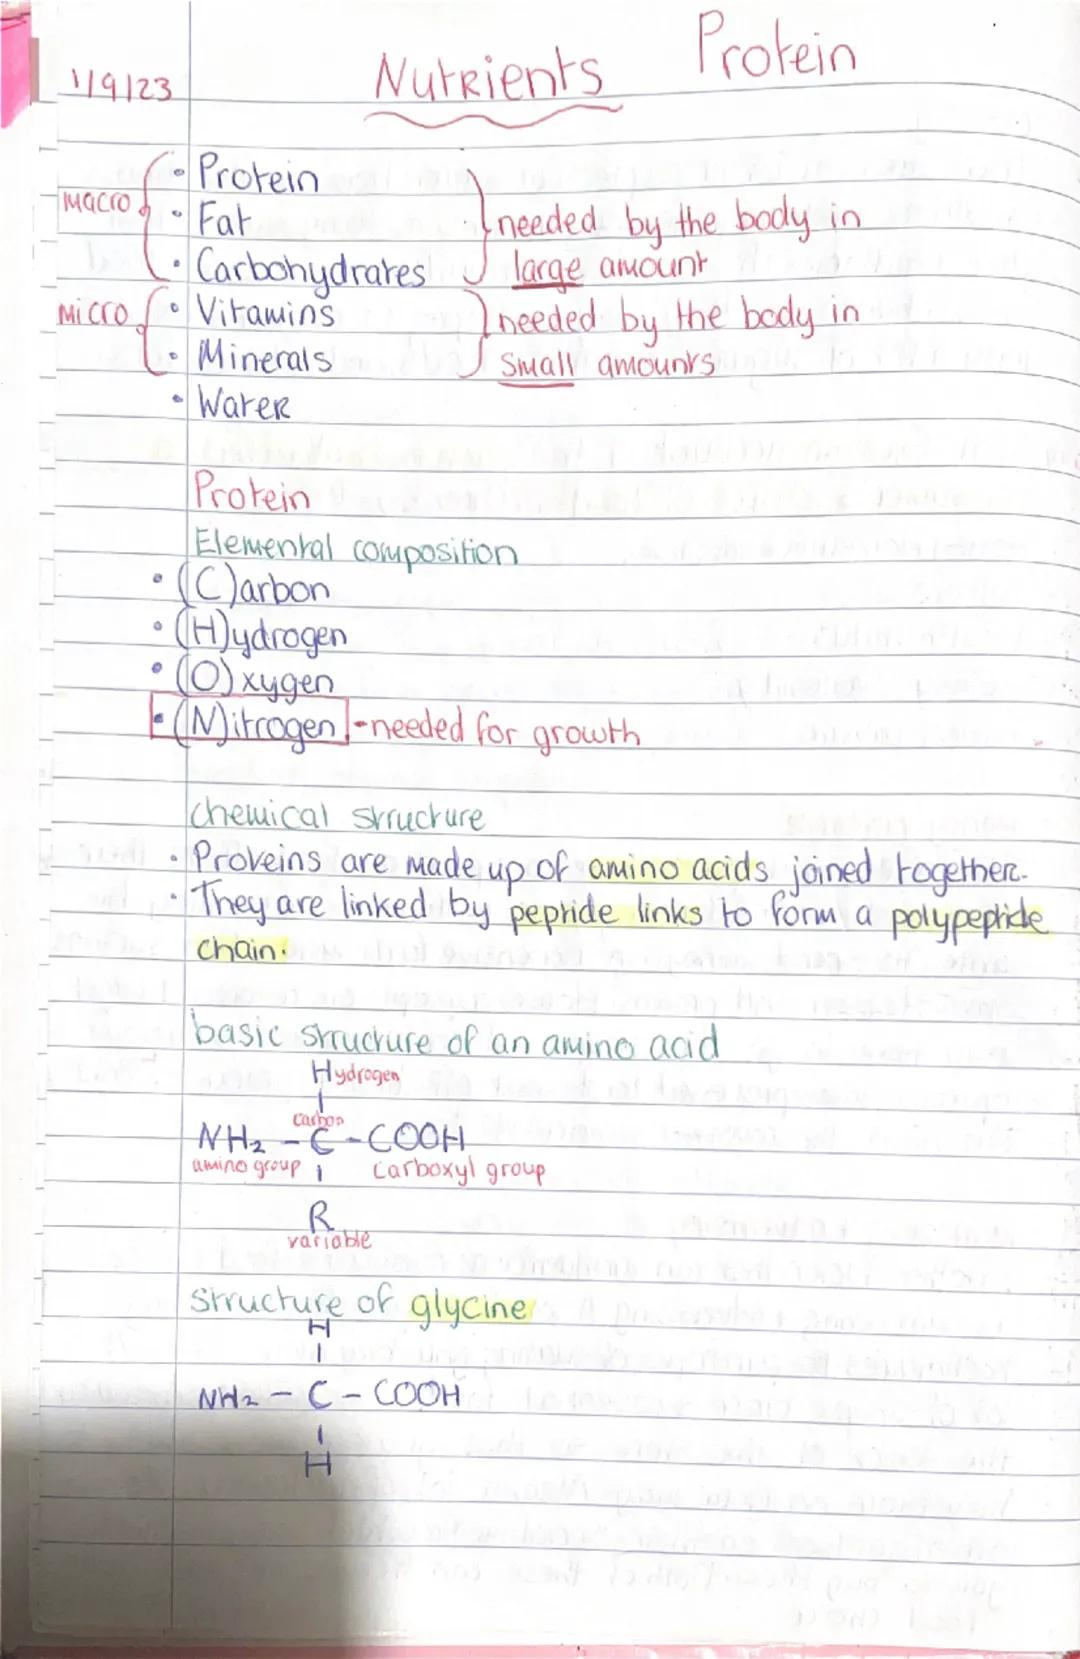 1/9/23
Nutrients Protein
macro
• Protein
• Fat
• Carbohydrates
needed by the body in
large amount
micro
• Vitamins
• Minerals
needed by the body in
small amounts
• Water
Protein
Elemental composition
• (C)arbon
• (H)ydrogen
• (O)xygen
• (N)itrogen - needed for growth
chemical structure
• Proteins are made up of amino acids joined together.
• They are linked by peptide links to form a polypeptide
chain.
basic structure of an amino acid
Hydrogen
carbon
NH₂ - C - COOH
amino group carboxyl group
R
variable
structure of glycine
H
NH₂ - C - COOH
H